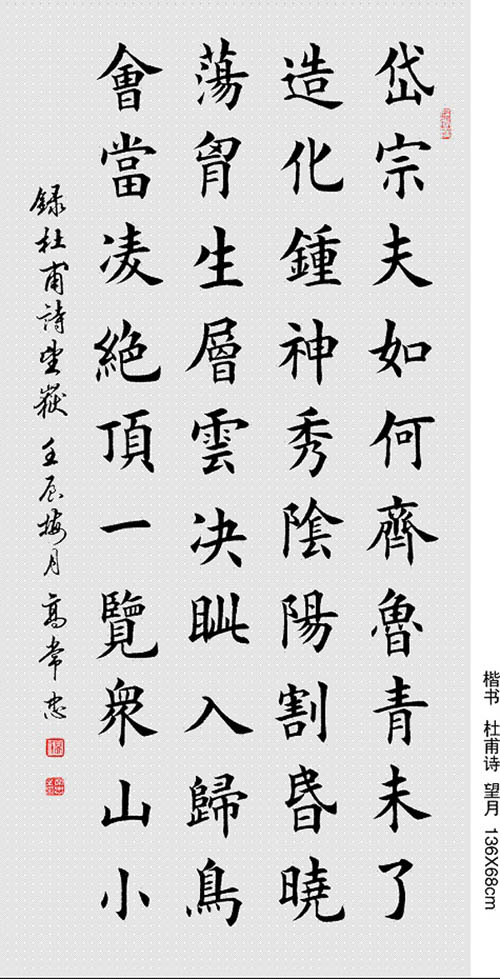 岱宗夫如何齊魯青未了
造化鍾神秀陰陽割昏曉
蕩胷生層雲决眦入歸鳥
會當凌絕頂一覽衆山小
録杜甫詩望嶽 壬辰梅月 高常忠
楷书 杜甫诗 望月 136X68cm